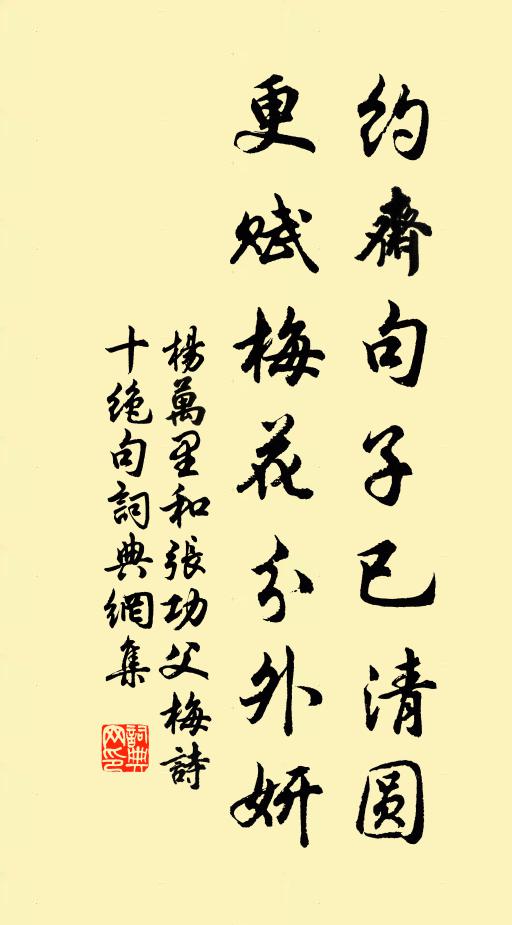 约齋句子已清圆
更赋梅花分外妍
楊萬里和張功父梅詩
十绝句詞典網集
詞典网印